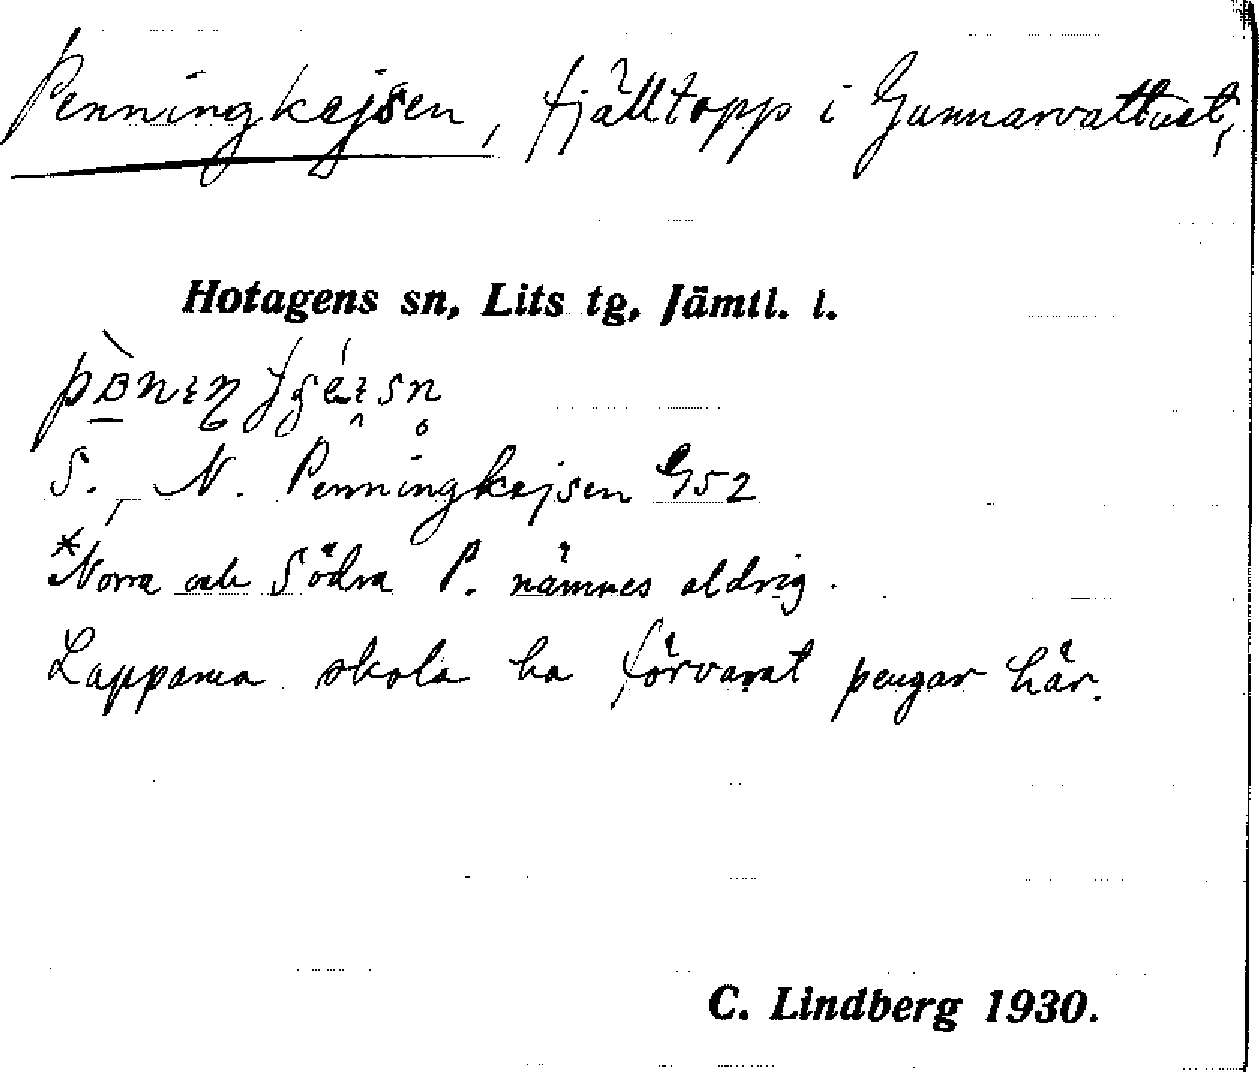 Penningkejsen, fjälltopp i Gunnarvattnet,
Hotagens sn, Lits tg, Jämtl. l.
S. N. Penningkejsen G52
*Norra och Södra P. nämnes aldrig.
Lapparna skola ha förvarat pengar här.
C. Lindberg 1930.